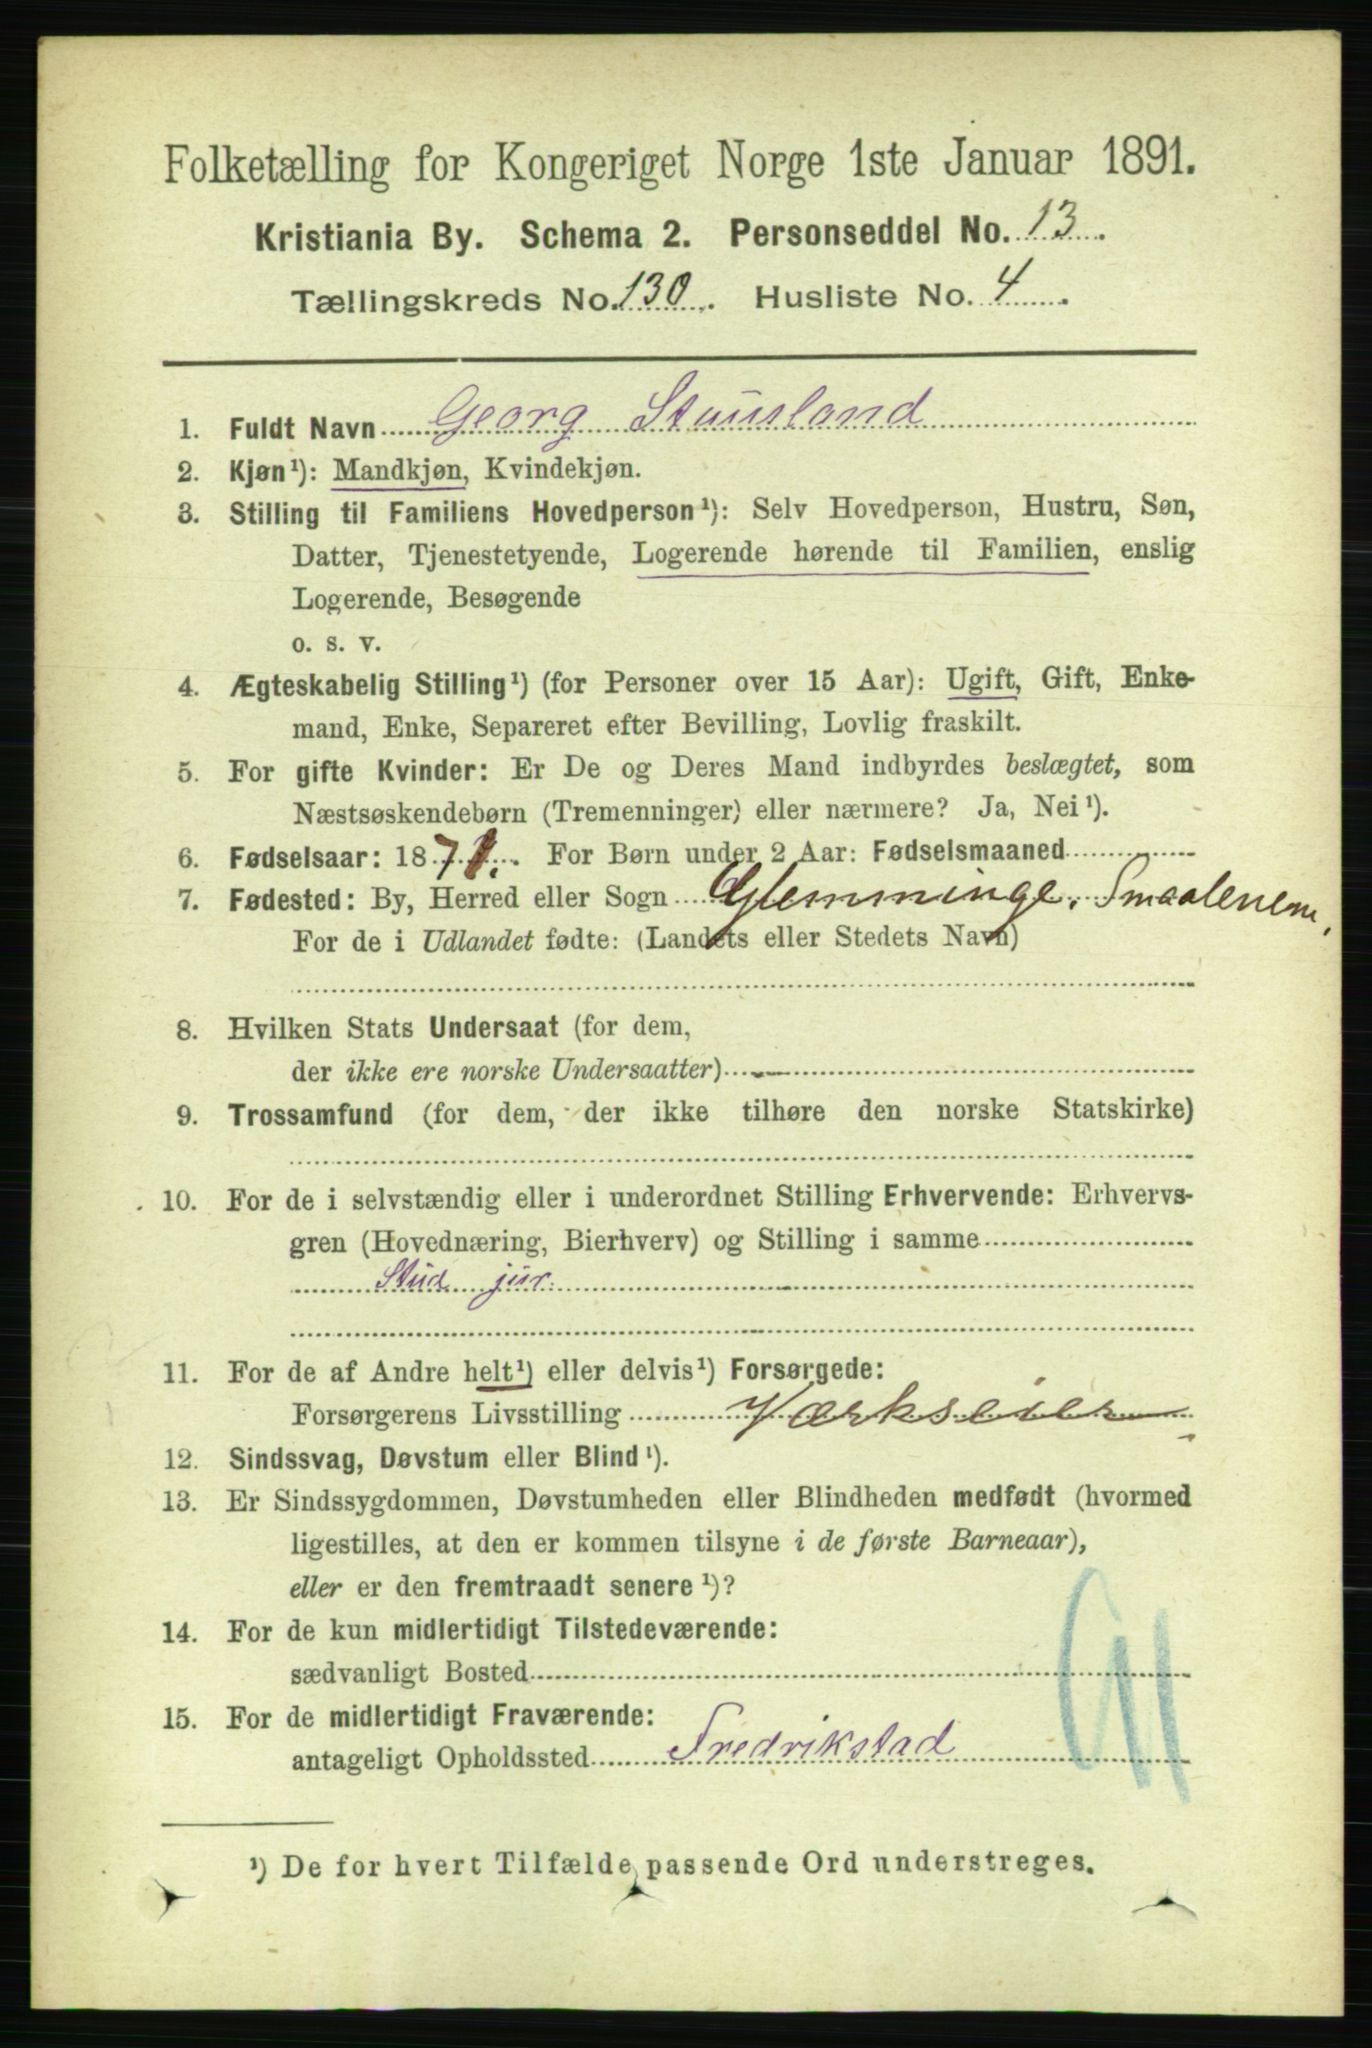 Folketælling for Kongeriget Norge 1ste Januar 1891.
Kristiania By. Schema 2. Personseddel No. 13.
Tællingskreds No. 130. Husliste No. 4.
1. Fuldt Navn Georg Stousland
2. Kjøn¹): Mandkjøn, Kvindekjøn.
3. Stilling til Familiens Hovedperson¹): Selv Hovedperson, Hustru, Søn,
Datter, Tjenestetyende, Logerende hørende til Familien, enslig
Logerende, Besøgende
o. s. v.
4. Ægteskabelig Stilling¹) (for Personer over 15 Aar): Ugift, Gift, Enke-
mand, Enke, Separeret efter Bevilling, Lovlig fraskilt.
5. For gifte Kvinder: Er De og Deres Mand indbyrdes beslægtet, som
Næstsøskendebørn (Tremenninger) eller nærmere? Ja, Nei¹).
6. Fødselsaar: 1871. For Børn under 2 Aar: Fødselsmaaned
7. Fødested: By, Herred eller Sogn Glemminge, Smaalenene,
For de i Udlandet fødte: (Landets eller Stedets Navn)
8. Hvilken Stats Undersaat (for dem,
der ikke ere norske Undersaatter) —
9. Trossamfund (for dem, der ikke tilhøre den norske Statskirke)
10. For de i selvstændig eller i underordnet Stilling Erhvervende: Erhvervs-
gren (Hovednæring, Bierhverv) og Stilling i samme
Stud jur.
11. For de af Andre helt¹) eller delvis¹) Forsørgede:
Forsørgerens Livsstilling Værkseier
12. Sindssvag, Døvstum eller Blind¹).
13. Er Sindssygdommen, Døvstumheden eller Blindheden medfødt (hvormed
ligestilles, at den er kommen tilsyne i de første Barneaar),
eller er den fremtraadt senere¹)?
14. For de kun midlertidigt Tilstedeværende:
sædvanligt Bosted
15. For de midlertidigt Fraværende:
antageligt Opholdssted Fredrikstad
¹) De for hvert Tilfælde passende Ord understreges.